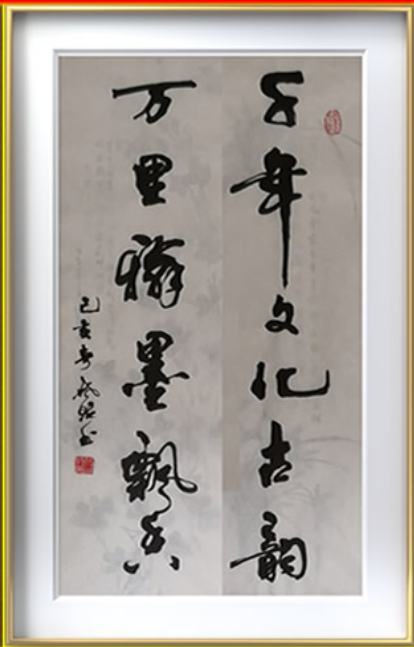 千年文化古韵
万里翰墨飘香
己亥春